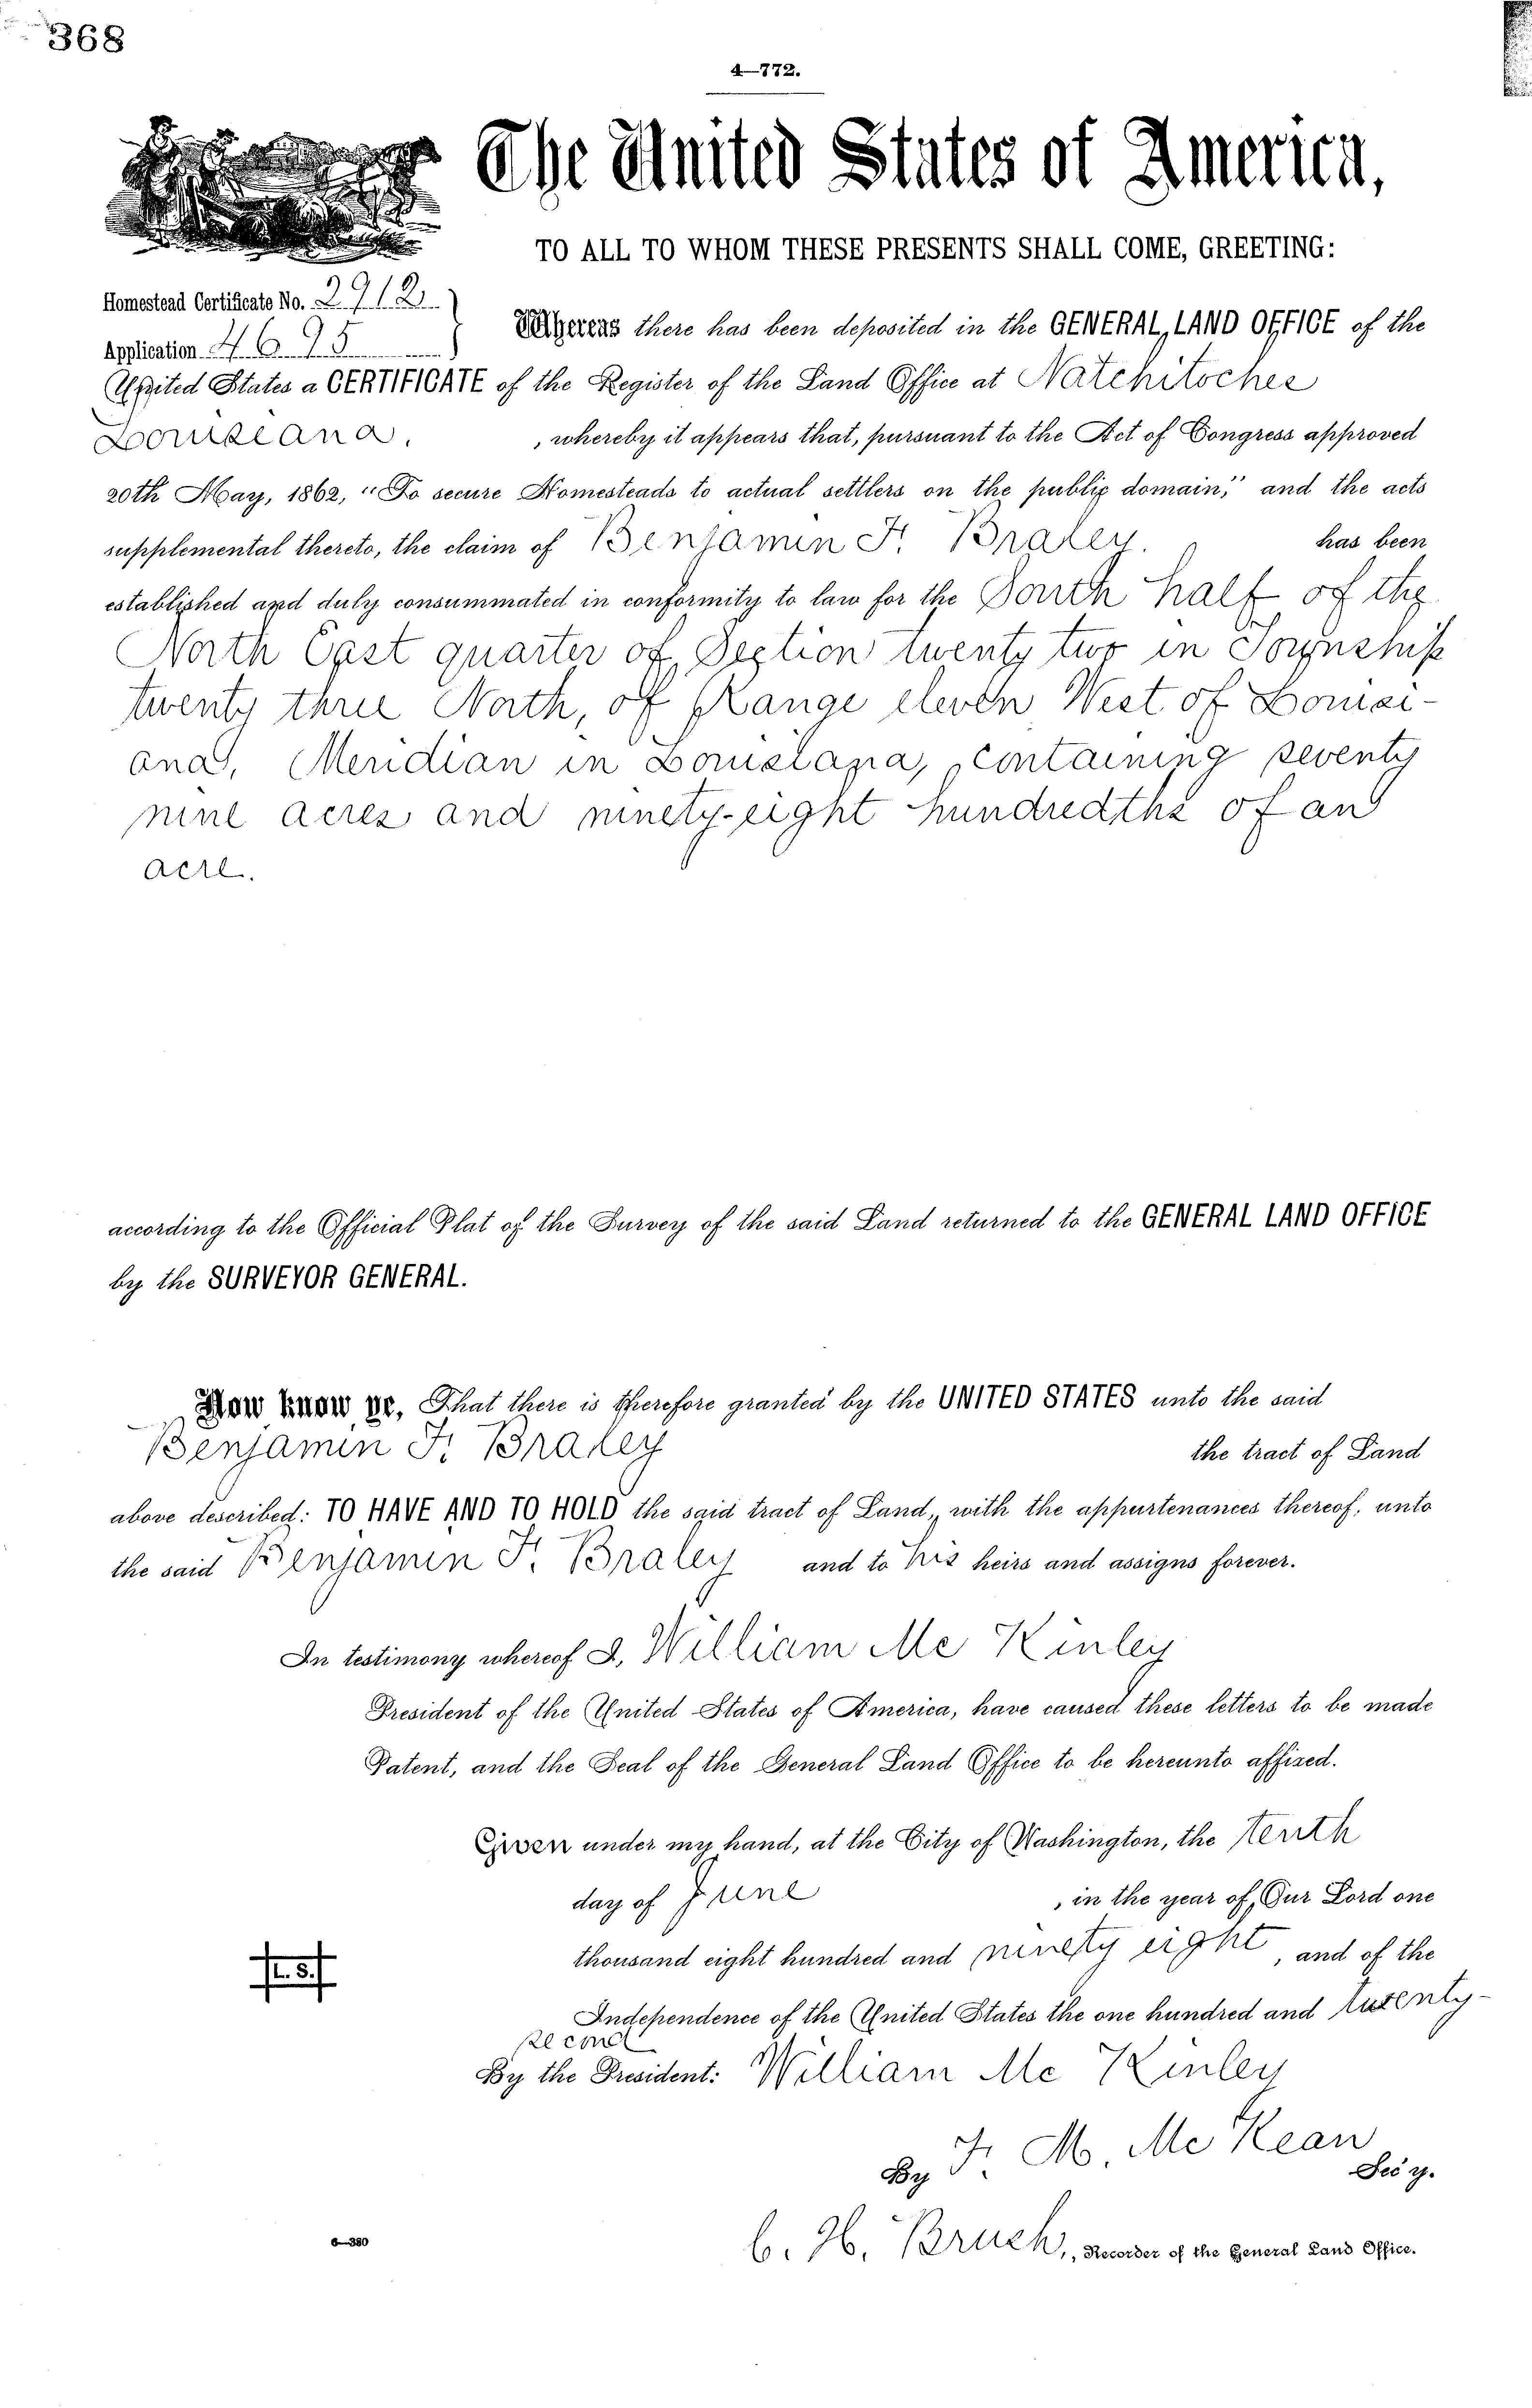 368
4—772.
The United States of America,
TO ALL TO WHOM THESE PRESENTS SHALL COME, GREETING:
Homestead Certificate No. 2912
Application 4695
Whereas there has been deposited in the GENERAL LAND OFFICE of the
United States a CERTIFICATE of the Register of the Land Office at Natchitoches
Louisiana, , whereby it appears that, pursuant to the Act of Congress approved
20th May, 1862, "To secure Homesteads to actual settlers on the public domain," and the acts
supplemental thereto, the claim of Benjamin F. Braley. has been
established and duly consummated in conformity to law for the South half of the
North East quarter of Section twenty two in Township
twenty three North, of Range eleven West of Louisi-
ana, Meridian in Louisiana, containing seventy
nine acres and ninety-eight hundredths of an
acre.
according to the Official Plat of the Survey of the said Land returned to the GENERAL LAND OFFICE
by the SURVEYOR GENERAL.
Now know ye, That there is therefore granted by the UNITED STATES unto the said
Benjamin F. Braley the tract of Land
above described: TO HAVE AND TO HOLD the said tract of Land, with the appurtenances thereof, unto
the said Benjamin F. Braley and to his heirs and assigns forever.
In testimony whereof I, William McKinley
President of the United States of America, have caused these letters to be made
Patent, and the Seal of the General Land Office to be hereunto affixed.
Given under my hand, at the City of Washington, the tenth
day of June , in the year of Our Lord one
thousand eight hundred and ninety eight, and of the
Independence of the United States the one hundred and twenty-
second
L.S.
By the President: William McKinley
By F. M. McKean
Sec'y.
C. H. Brush, , Recorder of the General Land Office.
6—380